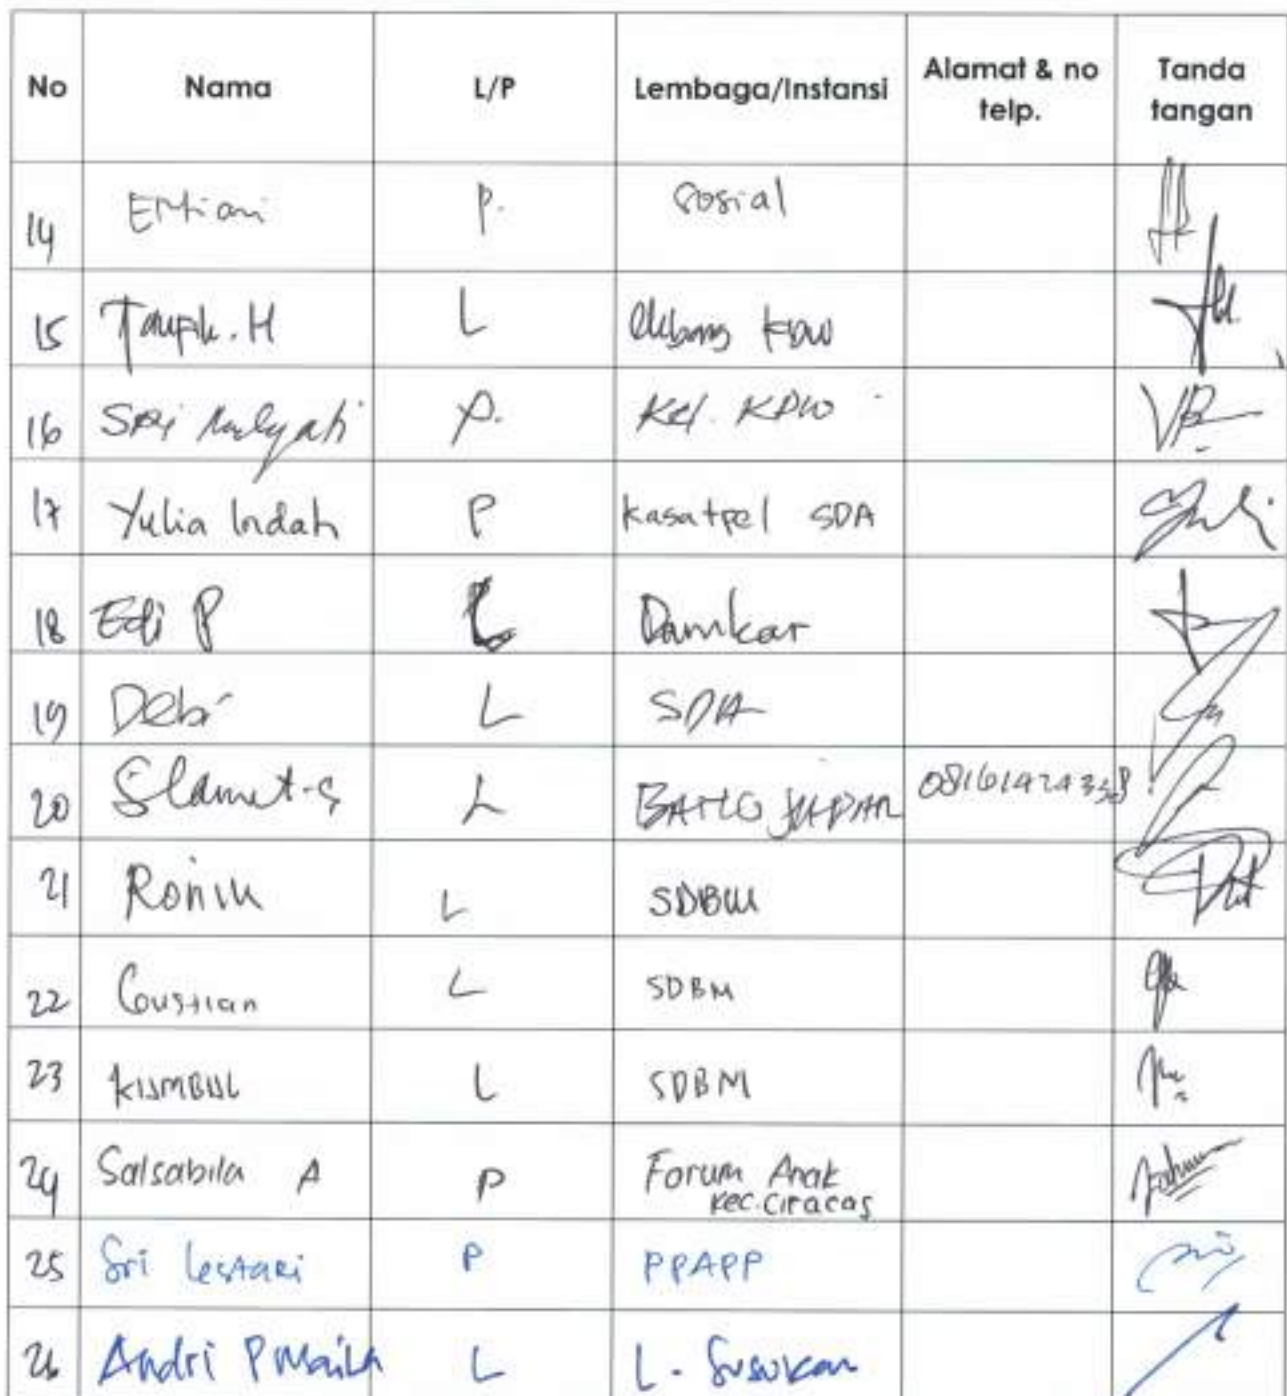 No Nama L/P Lembaga/Instansi Alamat & no telp. Tanda tangan
14 Ertiani P. Sosial
15 Taupik. H L Ekbang KDW
16 Sri Mulyati P. Kel. KDW
17 Yulia Indah P Kasatpel SDA
18 Edi P L Damkar
19 Debi L SDA
20 Slamet.S L
21 L SDBM
22 Goustian L SDBM
23 KUMBUL L SDBM
24 Salsabila A P Forum Anak
Kec. Ciracas
25 Sri Lestari P PPAPP
26 Andri P L L. Susukan